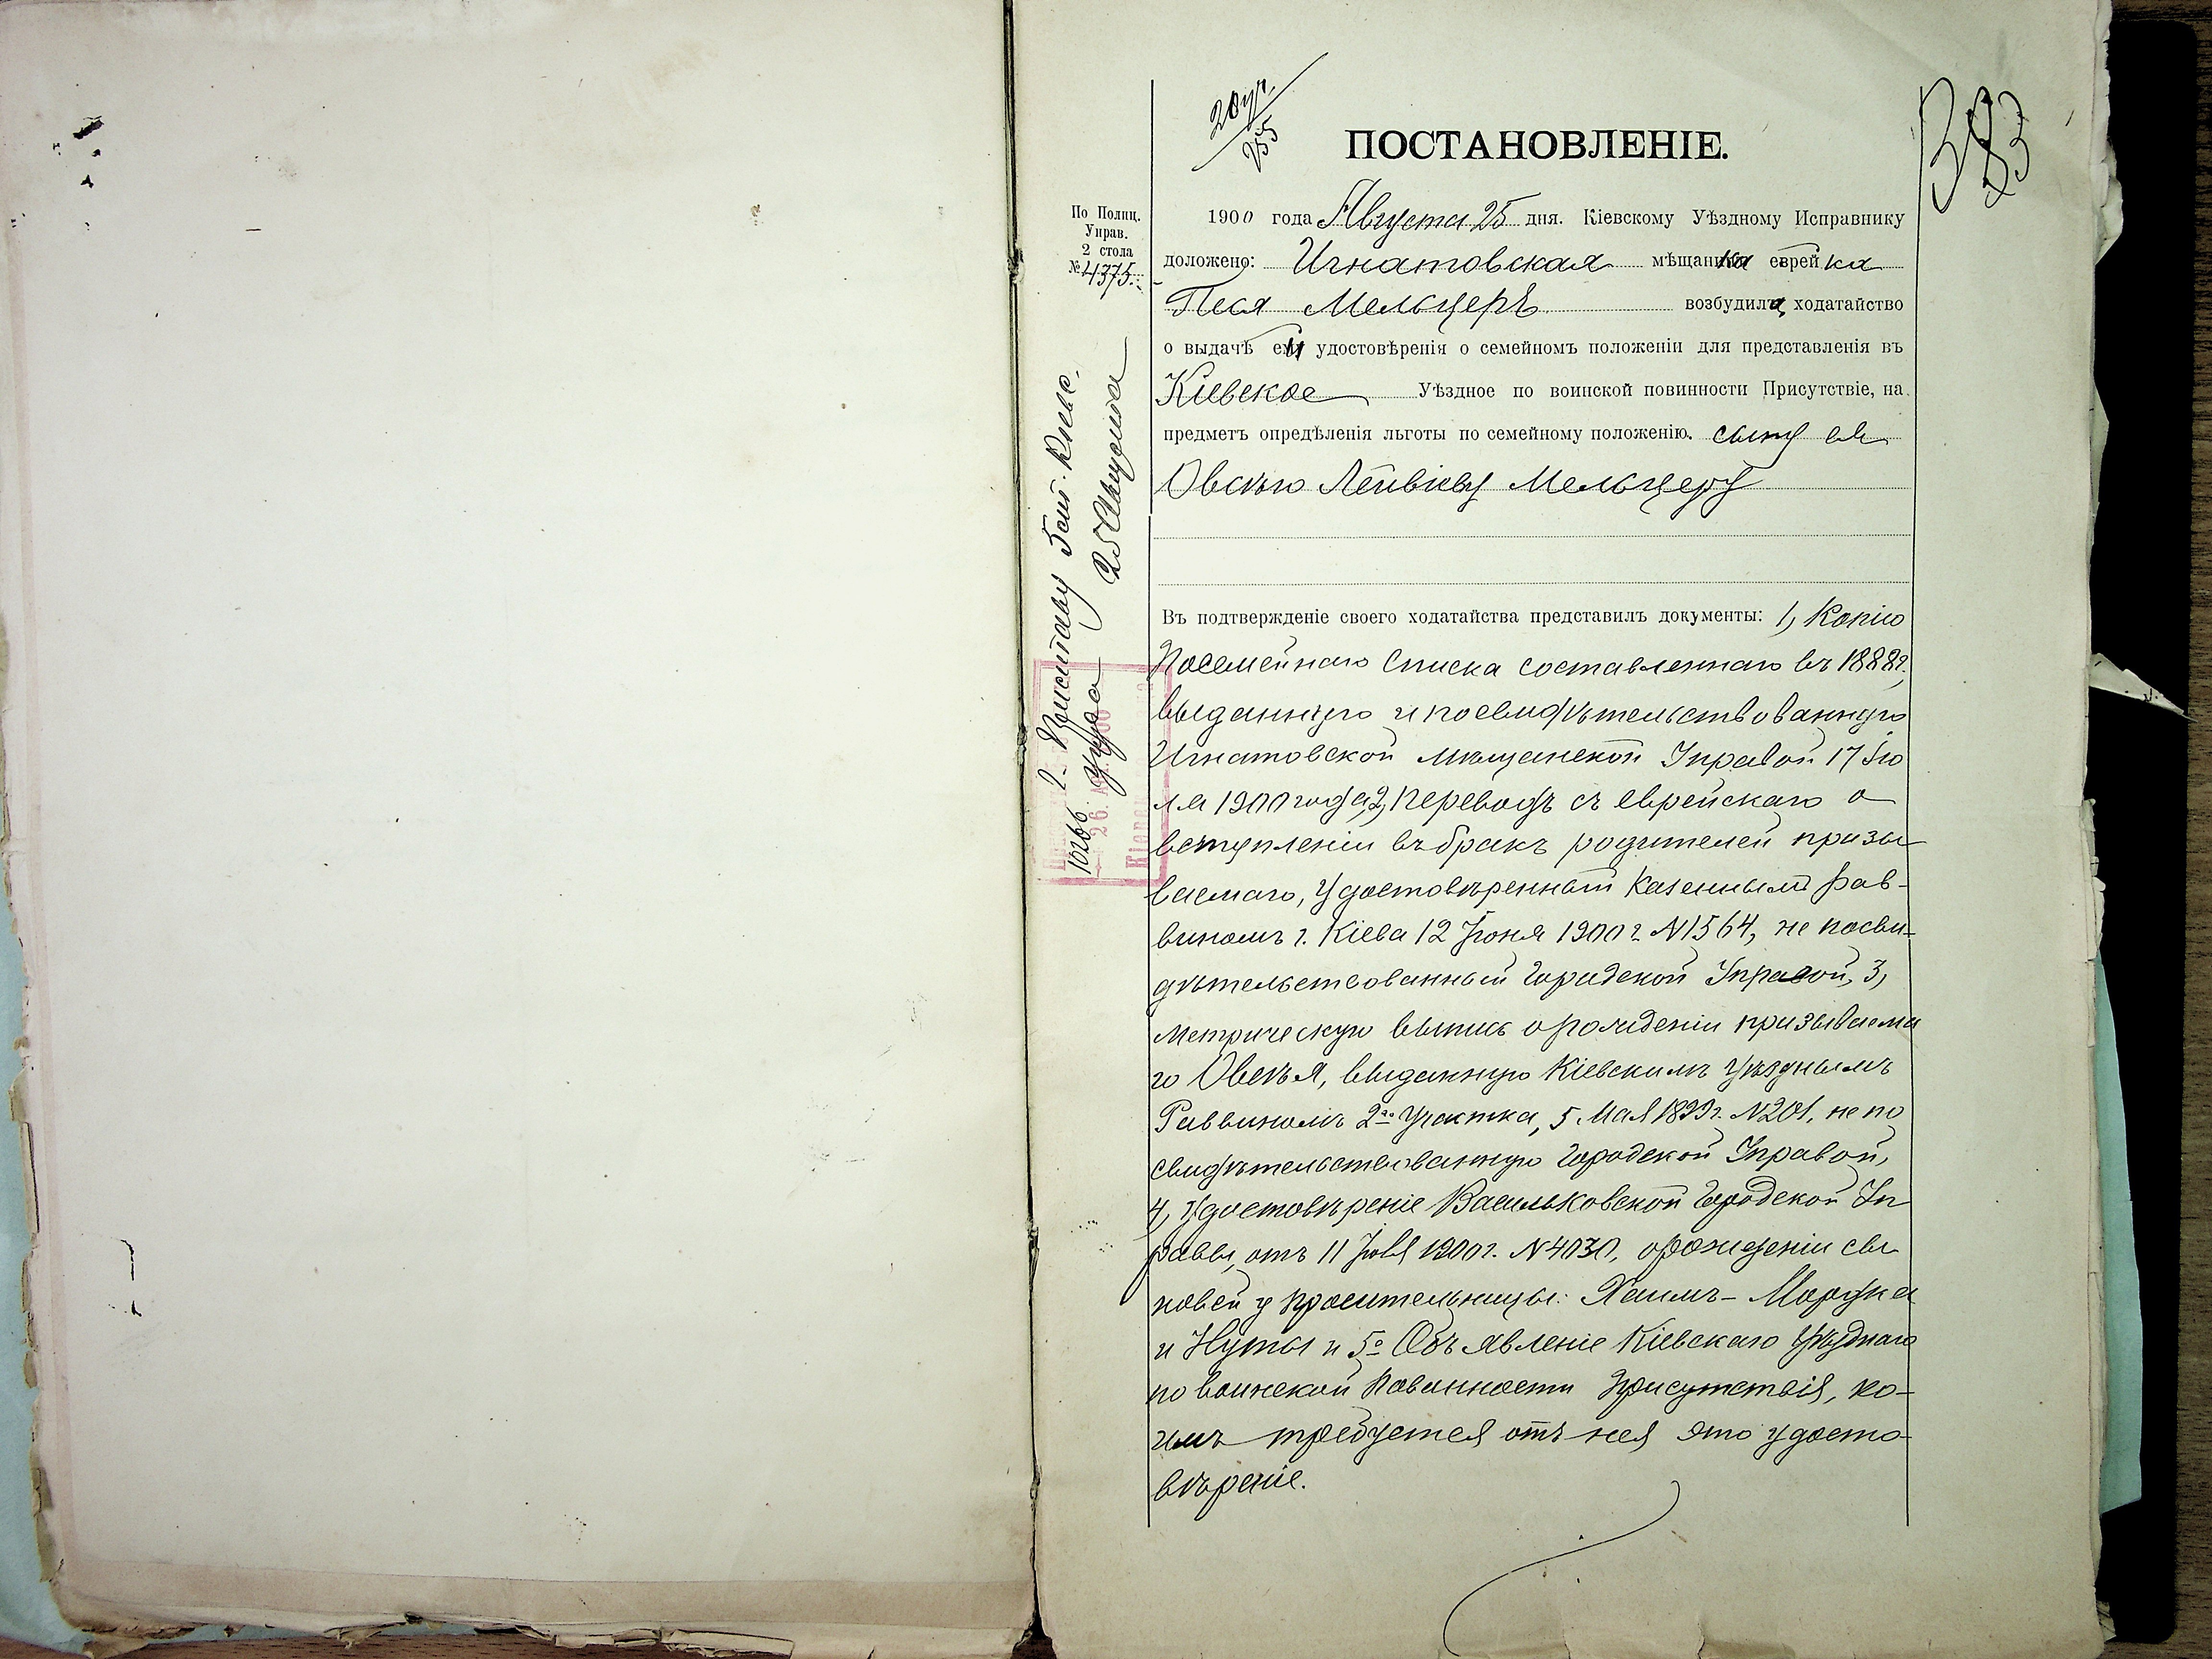 383
ПОСТАНОВЛЕНІЕ.
По Полиц.
Управ.
2 стола
№ 4375.
1900 года Августа 25 дня. Кіевскому Уѣздному Исправнику
доложено: Игнатовская мѣщанка еврейка
Песя Мельцеръ возбудила ходатайство
о выдачѣ ей удостовѣренія о семейномъ положеніи для представленія въ
Кіевское Уѣздное по воинской повинности Присутствіе, на
предметъ опредѣленія льготы по семейному положенію. сыну ея
Овсѣю Лейвіеву Мельцеру
Въ подтвержденіе своего ходатайства представилъ документы: 1, Копію
Посемейнаго Списка составленнаго въ 1888 г.
выданную и посвидѣтельствованную
Игнатовской мѣщанской Управой 17 Iю
ля 1900 года, 2, Переводъ съ еврейскаго о
вступленіи въ бракъ родителей призы
ваемаго, Удостовѣренный Казеннымъ Рав-
виномъ г. Кіева 12 Iюня 1900 г. № 1564, не посви-
дѣтельствованный Городской Управой, 3,
Метрическую выпись о рожденіи призываема
го Овсѣя, выданную Кіевскимъ Уѣзднымъ
Раввиномъ 2го Участка, 5 Мая 1899 г. № 201, не по
свидѣтельствованную Городской Управой,
4, Удостовѣреніе Васильковской Городской Уп
равы, отъ 11 1900 г. № 4030, о рожденіи сы
новей у просительницы: Хаимъ-Мордка
и Нуты и 5º Объявленіе Кіевскаго Уѣзднаго
по воинской Повинности Присутствія, ко-
имъ требуется отъ нея это удосто-
вѣреніе.
10266 Приставу 5 ст. Кіевс.
уѣзда 25 Августа